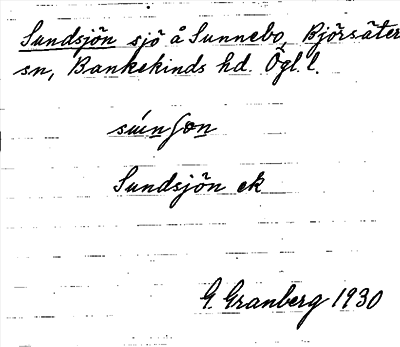 Sundsjön sjö å Sunnebo, Björsäter
sn, Bankekinds hd. Ögl. l.
Sundsjön ek
G. Granberg 1930